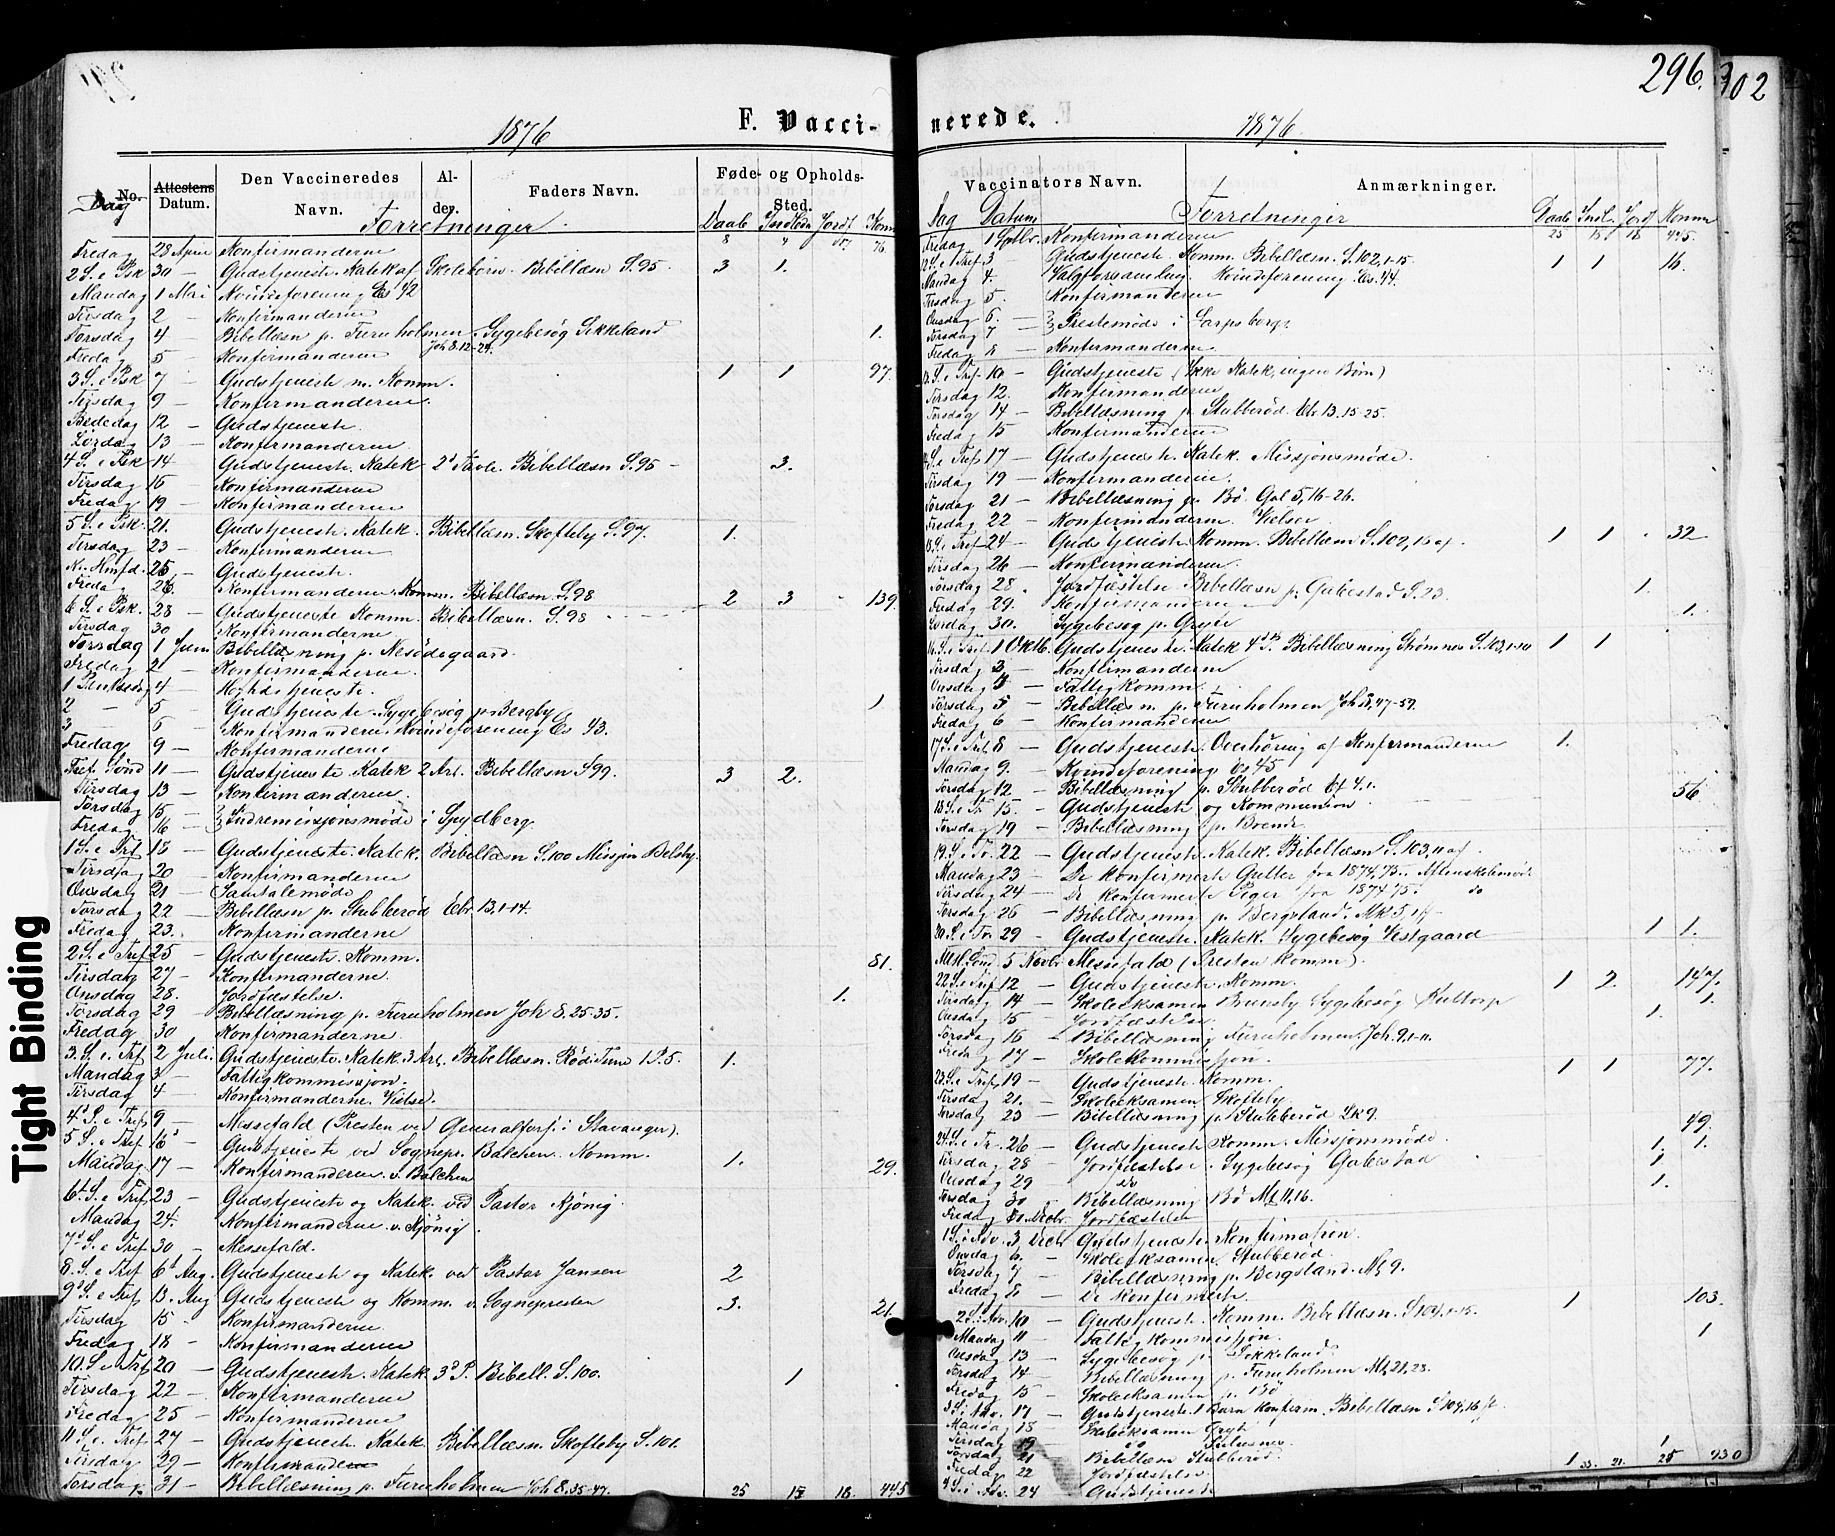 296.
302
F. Vacci-
nerede.
1876
1876
No.
Dag
Attestens Datum.
Den Vaccineredes Navn.
Al-der.
Faders Navn.
Føde- og Opholds-Sted.
Forretninger
Daab Indledn Jordf Komm
8 " 76
Fredag 28 April Konfirmanderne
2 S. e Psk 30 - Gudstjeneste Katek af Skolebørn. Bibellæsn S. 95 3 1.
Mandag 1 Mai Kvindeforening Es 42
Tirsdag 2 - Konfirmanderne
Torsdag 4 - Bibellæsn p. Furuholmen. Sygebesøg Sikkeland 1.
Joh 8.12-24.
Fredag 5 - Konfirmanderne
3 S. e Psk 7 - Gudstjeneste m. Komm. 1 1 97.
Tirsdag 9 - Konfirmanderne.
Bededag 12 - Gudstjeneste.
Lørdag 13 - Konfirmanderne
4 S. e Psk 14 - Gudstjeneste. Katek 2d Tavle. Bibellæsn S. 95 - 3.
Tirsdag 16 - Konfirmanderne
Fredag 19 - Konfirmanderne
5 S. e Psk. 21. Gudstjeneste. Katek. Bibellæsn. Skofteby S. 97. 1.
Tirsdag 23 - Konfirmanderne
Kr. Hmfd. 25 - Gudstjeneste.
Fredag 26 - Konfirmanderne. Komm. Bibellæsn S. 98
6 S. e Psk. 28 - Gudstjeneste Komm. Bibellæsn. S. 98 2 3 - 139.
Tirsdag 30 - Konfirmanderne
Torsdag 1 Juni Bibellæsning p. Nesødegaard.
Fredag 2 - Konfirmanderne.
1 Pintsedag 4 - Høitidstjeneste.
2 - 5 - Gudstjeneste. Sygebesøg p. Bergby 1
3 - 6 - Konfirmanderne. Kvindeforening Es 43.
Fredag 9 - Konfirmanderne
Tref. Sønd 11 - Gudstjeneste Katek 2 Art. Bibellæsn S 99. 3 2.
Tirsdag 13 - Konfirmanderne.
Torsdag 15 - } Indremissjonsmøde i Spydberg
Fredag 16 - }
1 S. e Trf 18 - Gudstjeneste. Katek. Bibellæsn S. 100 Missjon Belsby.
Tirsdag 20 - Konfirmanderne
Onsdag 21 - Samtalemøde
Torsdag 22 - Bibellæsn p. Stubberød Ebr 13,1-14.
Fredag 23. - Konfirmanderne
2 S. e Tref 25 - Gudstjeneste. Komm. 81.
Tirsdag 27 - Konfirmanderne.
Onsdag 28. Jordfæstelse. 1.
Torsdag 29 - Bibellæsning p. Furuholmen Joh 8,25-35.
Fredag 30 - Konfirmanderne
3. S. e. Trf 2 Juli. Gudstjeneste. Katek. 3 Art. Bibellæsn. Rød i Tune 1 P. 5. 1.
Mandag 3. - Fattigkommissjon.
Tirsdag 4 - Konfirmanderne. Vielse.
4d S. e Tref. 9 - Messefald (Presten ved Generalforf. i Stavanger).
5 S. e Tref 16 Gudstjeneste ved Sognepr. Balchen Komm. 1. 29.
Mandag 17 - Konfirmanderne v. Balchen
6t S. e Tref. 23 - Gudstjeneste og Katek. ved Pastor Kjönig.
Mandag 24. - Konfirmanderne. v. Kjönig.
7d S. e Tref 30 - Messefald.
8. S. e Tref 6t Aug. Gudstjeneste og Katek. ved Pastor Jansen 2
9d S. e Tref 13. Aug Gudstjeneste og Komm. v. Sognepresten 3. 21.
Tirsdag 15 - Konfirmanderne.
Fredag 18 - Konfirmanderne
10. S. e Tref 20 - Gudstjeneste. Katek. 3d P. Bibell. S. 100. 1
Tirsdag 22 - Konfirmanderne
Fredag 25 - Konfirmanderne
11 S. e. Tref. 27 - Gudstjeneste Katek. Bibellæsn. Skofteby S. 101.
Tirsdag 29 - Konfirmanderne
Torsdag 31 - Bibellæsning p. Furuholmen Joh 8.35-47. 25 15 18. 445
Vaccinators Navn.
Anmærkninger.
Dag Datum Forretninger Daab Indl. Jordf Komm
25 15 18 445.
Fredag 1 Septbr. Konfirmanderne
12 S. e Tref 3 - Gudstjeneste Komm. Bibellæsn. S. 102,1-15 1 1 16.
Mandag 4. - Valgforsamling. Kvindeforening. Es. 44.
Tirsdag 5. - Konfirmanderne
Onsdag 6. - } Prestemøde i Sarpsborg.
Torsdag 7 - }
Fredag 8 - Konfirmanderne.
13 S. e Tref 10 - Gudstjeneste (Ikke Katek, ingen Børn)
Tirsdag 12. Konfirmanderne
Torsdag 14 - Bibellæsning p. Stubberød Ebr 13.15-25.
Fredag 15 Konfirmanderne
14 S. e Tref 17 - Gudstjeneste Katek. Missjonsmøde.
Tirsdag 19 - Konfirmanderne.
Torsdag 21 - Bibellæsning p. Bø. Gal 5,16-26.
Fredag 22 - Konfirmanderne. Vielser
15 S. e Tref 24 - Gudstjeneste Komm. Bibellæsn S. 102,16 af. 1 1 . 32
Tirsdag 26 - Konfirmanderne.
Torsdag 28. Jordfæstelse Bibellæsn p. Gabestad S. 23. 1.
Fredag 29. - Konfirmanderne
Lørdag 30. - Sygebesøg p. Gryte 1.
16 S. e Tref 1 Oktb. Gudstjeneste. Katek 4d P. Bibellæsning Strømnes S. 103,1-10 1 1
Tirsdag 3 - Konfirmanderne
Onsdag 4 - Fattigkomm.
Torsdag 5 - Bibellæsn. p. Furuholmen Joh 8,47-59.
Fredag 6 - Konfirmanderne
17 S. e Tref 8 - Gudstjeneste. Overhøring af Konfirmanderne 1.
Mandag 9. - Kvindeforening Es 45
Torsdag 12 - Bibellæsning p. Stubberød Ef 4.1.
18 S. e Tr. 15. - Gudstjeneste og Kommunion 56
Torsdag 19 - Bibellæsning p. Boende
19. S. e Tr. 22 - Gudstjeneste. Katek. Bibellæsn S. 103,11 af
Mandag 23 - De konfirmerte Gutter fra 1874,75. Aftenskolemøde
Tirsdag 24 - De konfirmerte Piger fra 1874 75. do
Torsdag 26 - Bibellæsning p. Bergsland. Mk 5,1f-
20 S. e Tr. 29 - Gudstjeneste. Katek. Sygebesøg Vestgaard 1 1.
Alle H. Sønd 5 Novbr Messefald (Presten komm).
22 S. e Tref 12 - Gudstjeneste. Komm. 1 2. 147.
Tirsdag 14 - Skoleeksamen Brunsby Sygebesøg Kultorp 1.
Onsdag 15 - Jordfæstelse 1.
Torsdag 16 - Bibellæsning Furuholmen. Joh. 9,1-11.
Fredag 17 - Skolekommissjon.
23 S. e Tref 19 - Gudstjeneste. Komm. 1 1 77.
Tirsdag 21. - Skoleeksamen Skofteby
Torsdag 23 - Bibellæsning p. Stubberød Lk 9.
24 S. e Tr. 26 - Gudstjeneste Komm. Missjonsmøde. 49.
Tirsdag 28 - Jordfæstelse. Sygebesøg Gabestad 1. 1.
Onsdag 29 - do 1
Torsdag 30 - Bibellæsning Bø Mt. 11,16. 1.
Fredag Jordfæstelse
1 S. i Adv. 3 Decbr Gudstjeneste. Konfirmation.
Onsdag 6. - Skoleeksamen Stubberød.
Torsdag 7 - Bibellæsning p. Bergsland. Mt 9.
Fredag 8 - De konfirmerte
2 S. i Adv. 10 - Gudstjeneste. Komm. Bibellæsn. S 104,1-15. 1 103.
Mandag 11 - Fattigkommissjon. 1
Onsdag 13 - Sygebesøg p. Sikkeland
Torsdag 14 - Bibellæsning p. Furuholmen Mt. 21,28.
Fredag 15 - Skoleeksamen p. Bø
3 S. i Adv. 17 - Gudstjeneste. 1 Barn konfirm. Bibellæsn S 104,16 f.
Mandag 18 Skoleeksamen Gryte
Tirsdag 19 - do
Torsdag 21 - Bibellæsn Stubberød.
Fredag 22 - Jordfæstelse 1
4 S. i Adv. 24 - Gudstjeneste 1 33. 21. 25 930
Tight Binding